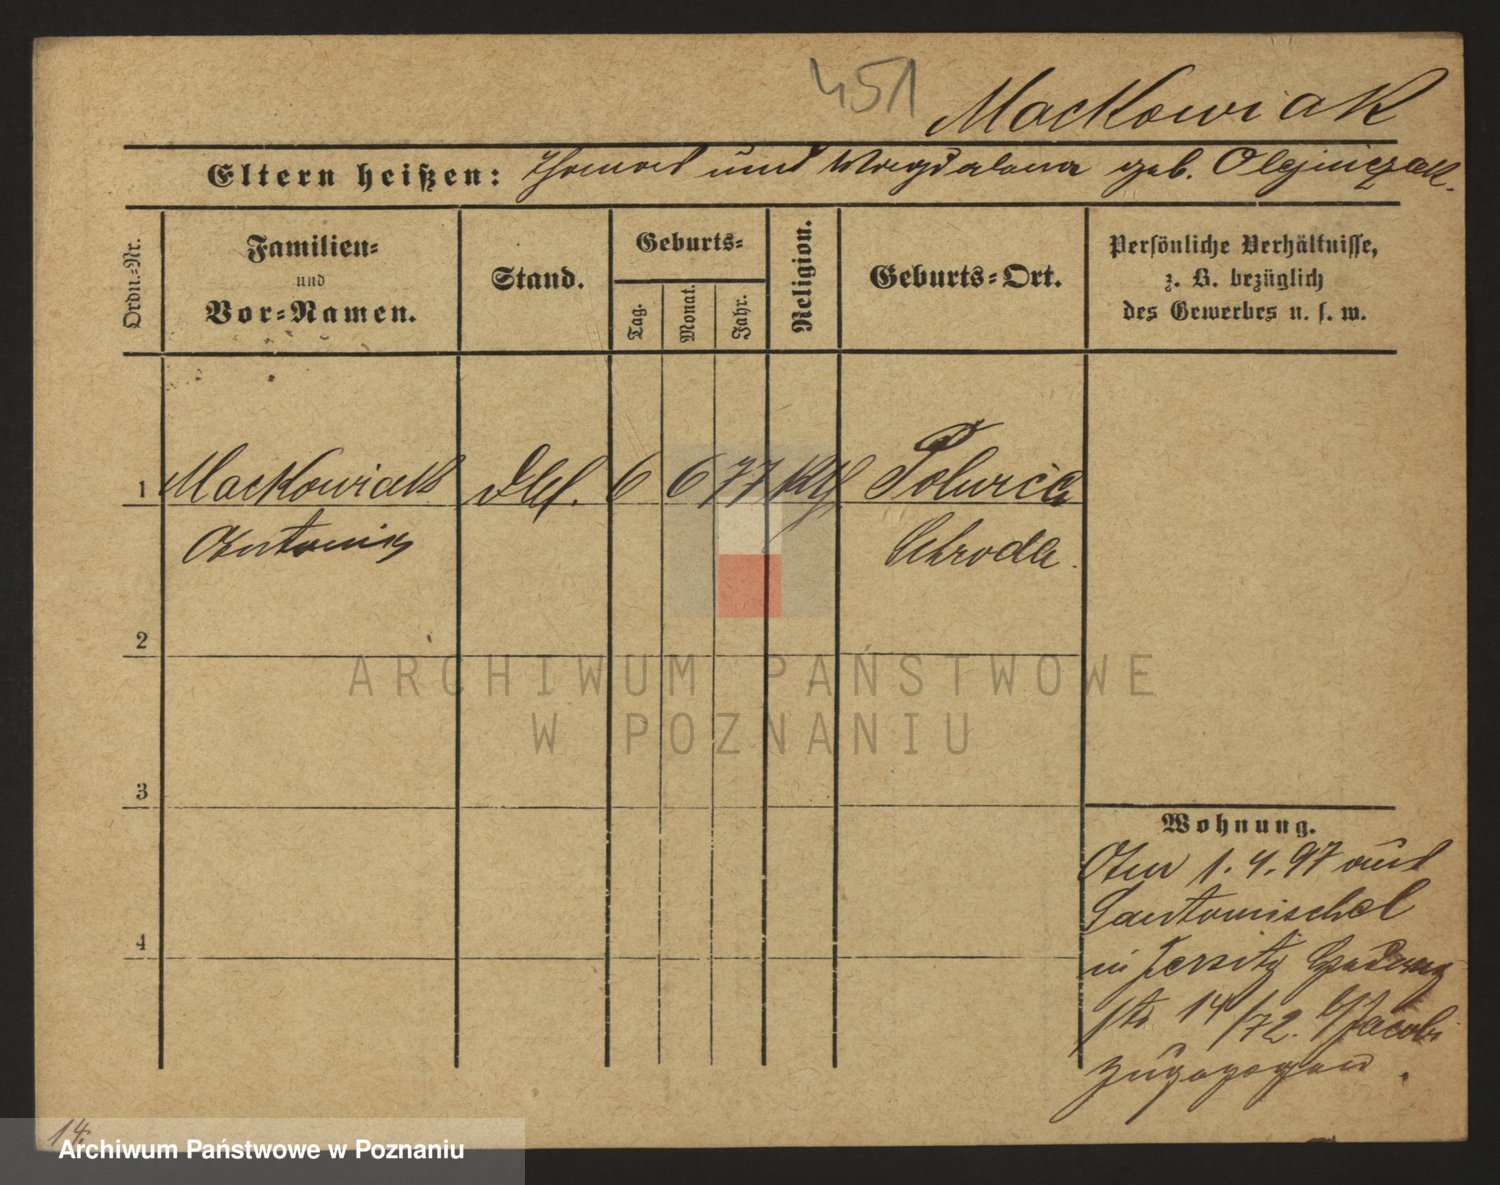 451
Mackowiak
Eltern heißen: Thomas und Magdalena geb. Olejniczak.
Ordn.-Nr.
Familien-
und
Vor-Namen.
Stand.
Geburts-
Tag.
Monat.
Jahr.
Religion.
Geburts-Ort.
Persönliche Verhältnisse,
z. B. bezüglich
des Gewerbes u. s. w.
1 Mackowiak 6 6 77 kth
Antonie Schroda.
2
3
4
Wohnung.
Am 1.4.97 aus
Santomischel
in Jersitz
str 14/72. b/Jacobi
zugezogen.
ARCHIWUM PAŃSTWOWE
W POZNANIU
14.
Archiwum Państwowe w Poznaniu